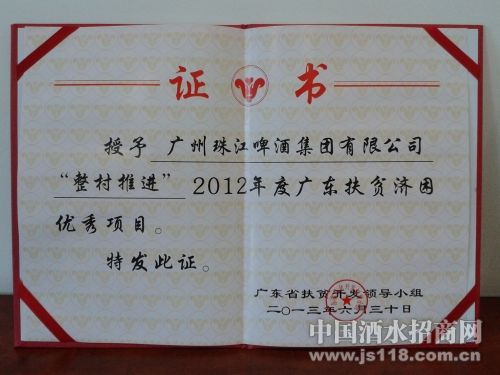 证书
授予 广州珠江啤酒集团有限公司
“整村推进” 2012年度广东扶贫济困
优秀项目。
特发此证。
广东省扶贫开发领导小组
二〇一三年六月三十日
中国酒水招商网
www.js118.com.cn